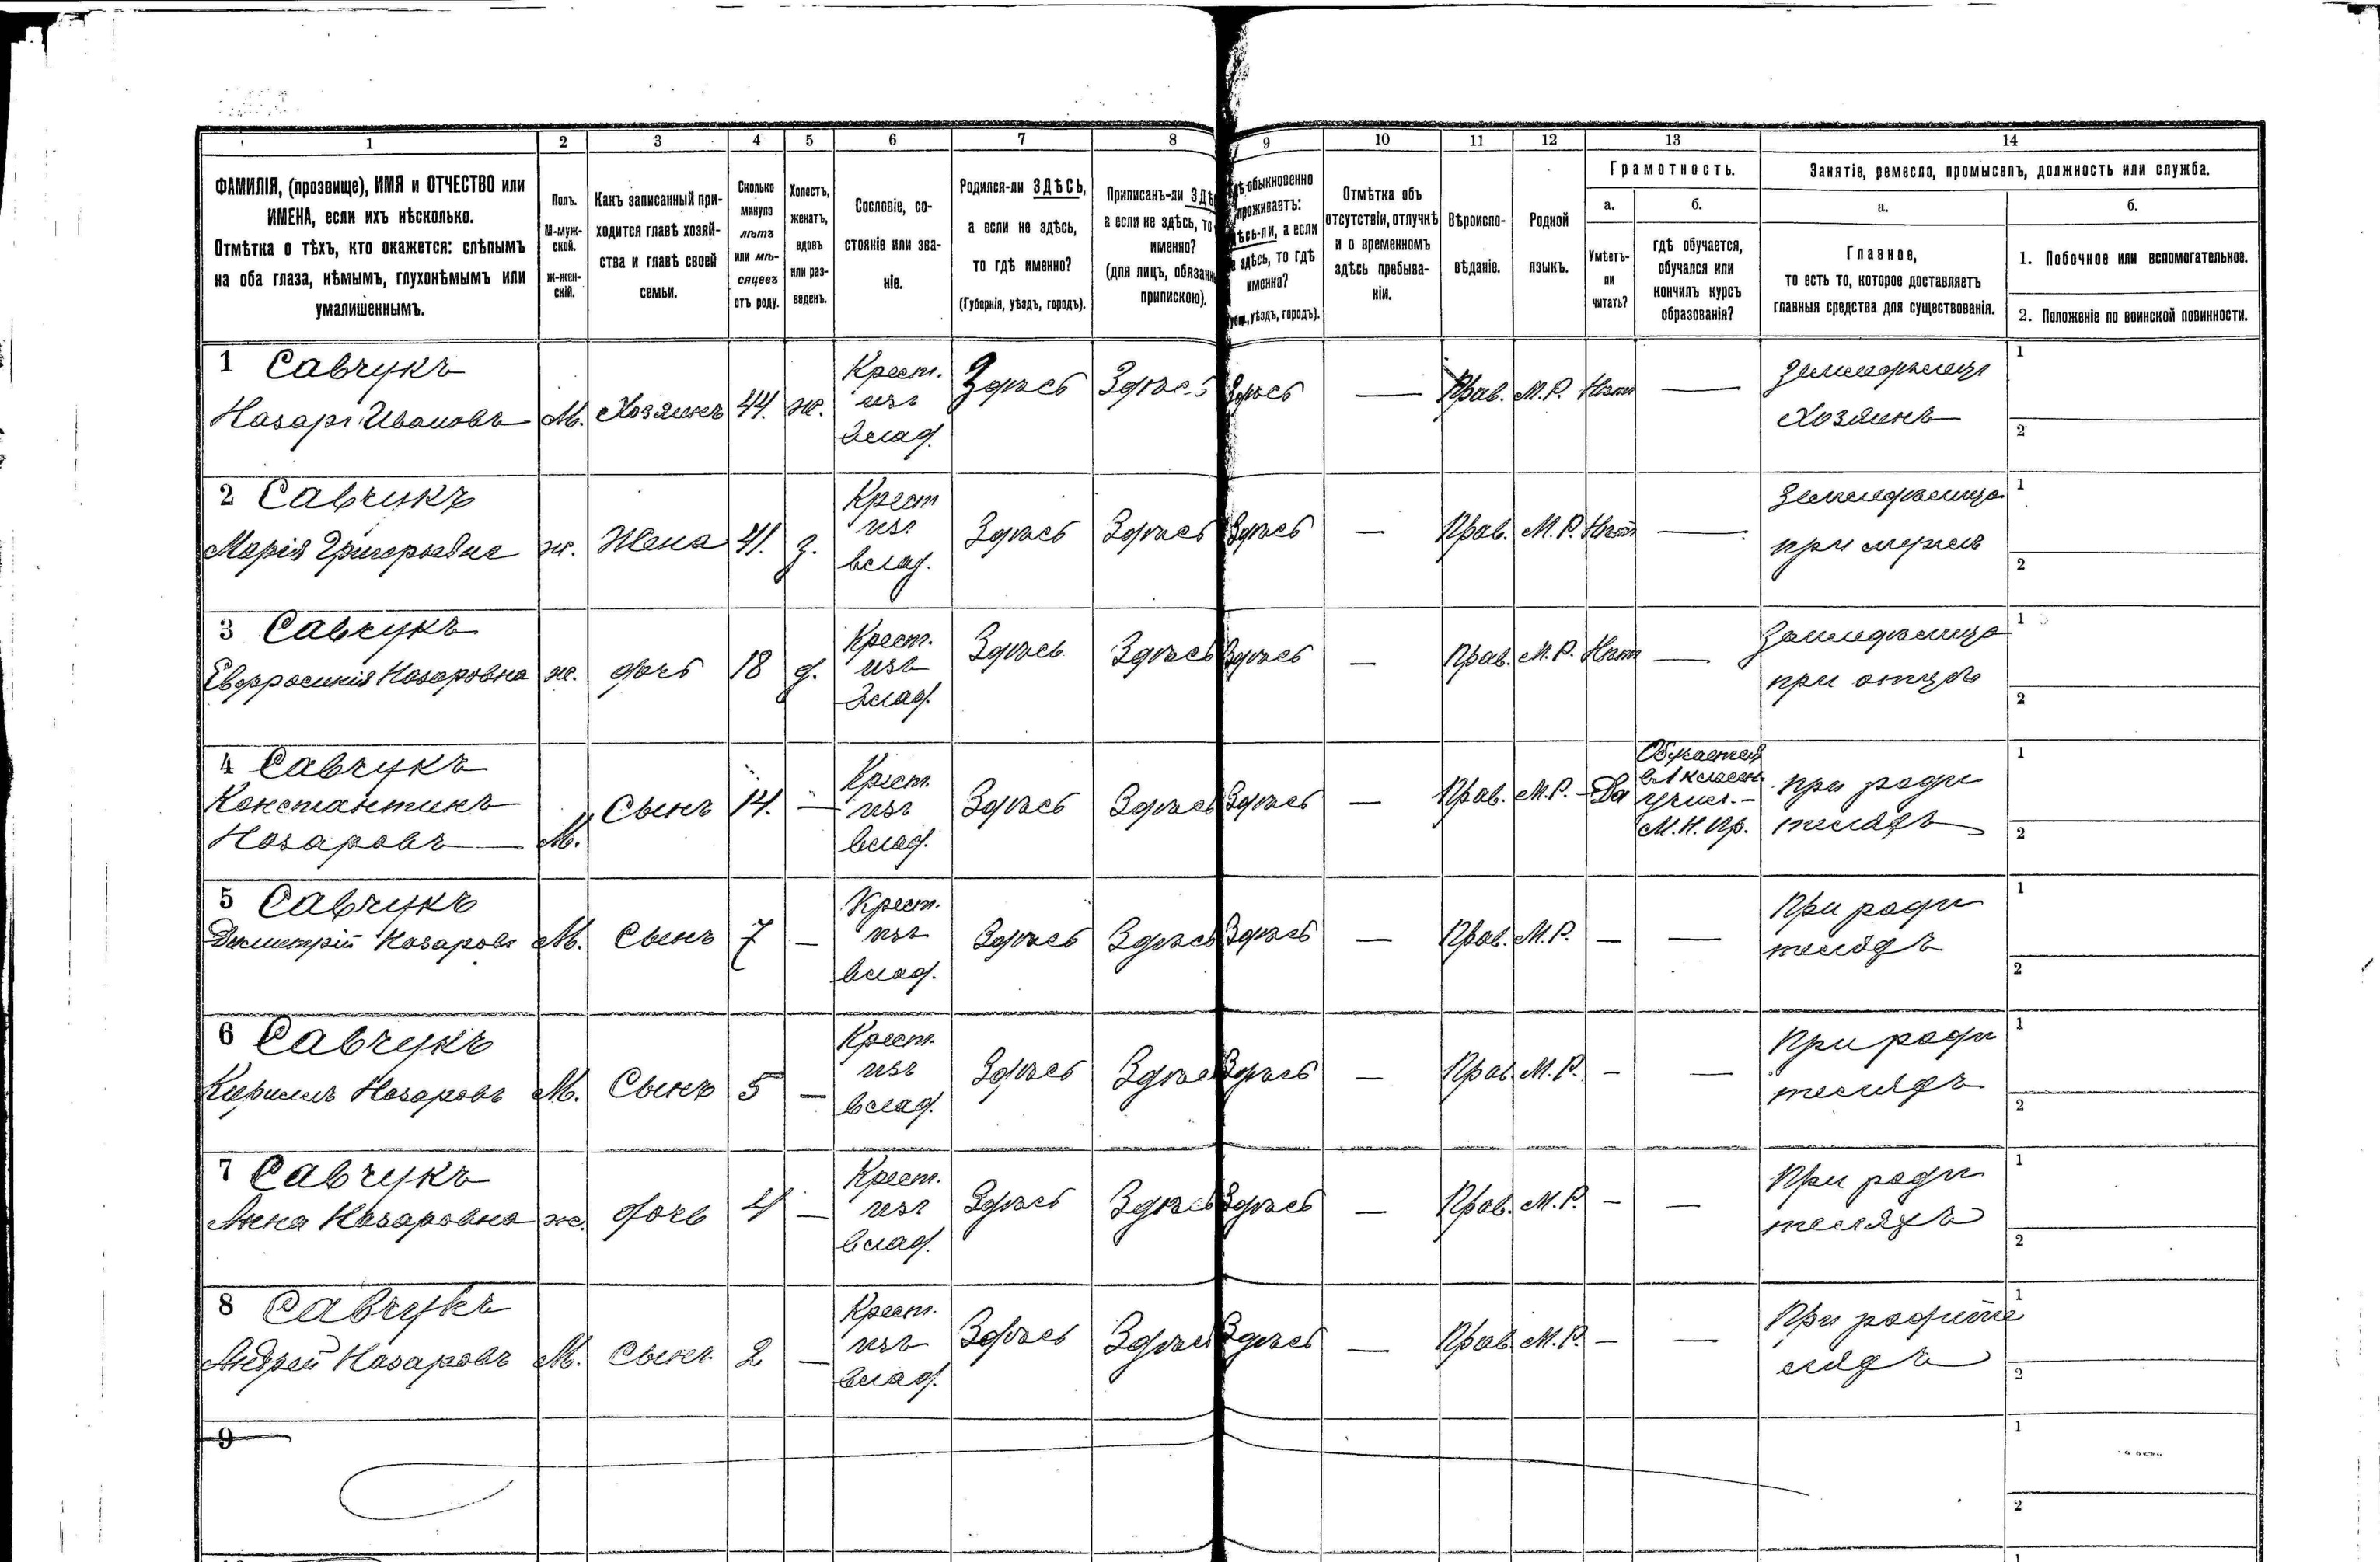 1 2 3 4 5 6 7 8 9 10 11 12 13 14
ФАМИЛІЯ, (прозвище), ИМЯ и ОТЧЕСТВО или
ИМЕНА, если ихъ нѣсколько.
Отмѣтка о тѣхъ, кто окажется: слѣпымъ
на оба глаза, нѣмымъ, глухонѣмымъ или
умалишеннымъ.
Полъ.
М-муж-
ской.
Ж-жен-
скій.
Какъ записанный при-
ходится главѣ хозяй-
ства и главѣ своей
семьи.
Сколько
минуло
лѣтъ
или мѣ-
сяцевъ
отъ роду.
Холостъ,
женатъ,
вдовъ
или раз-
веденъ.
Сословіе, со-
стояніе или зва-
ніе.
Родился-ли ЗДѢСЬ,
а если не здѣсь,
то гдѣ именно?
(Губернія, уѣздъ, городъ).
Приписанъ-ли
а если не здѣсь, то
именно?
(для лицъ,
припискою).
обыкновенно
проживаетъ:
а если
здѣсь, то гдѣ
именно?
уѣздъ, городъ).
Отмѣтка объ
отсутствіи, отлучкѣ
и о временномъ
здѣсь пребыва-
ніи.
Вѣроиспо-
вѣданіе.
Родной
языкъ.
Грамотность.
а.
Умѣетъ-
ли
читать?
б.
гдѣ обучается,
обучался или
кончилъ курсъ
образованія?
Занятіе, ремесло, промыселъ, должность или служба.
а.
Главное,
то есть то, которое доставляетъ
главныя средства для существованія.
б.
1. Побочное или вспомогательное.
2. Положеніе по воинской повинности.
1 Савчукъ
Назаръ Ивановъ М. Хозяинъ 44. ж.
Крест.
изъ
влад.
Здѣсь Здѣсь Здѣсь — Прав. М.Р. Нѣтъ —
Земледѣлецъ
Хозяинъ
1
2
2 Савчукъ
Марія Григорьевна ж. Жена 41. з.
Крест
изъ
влад.
Здѣсь Здѣсь Здѣсь — Прав. М.Р. Нѣтъ —
при мужѣ
1
2
3 Савчукъ
Евфросинія Назаровна ж. дочь 18 д.
Крест.
изъ
влад.
Здѣсь Здѣсь Здѣсь — Прав. М.Р. Нѣтъ —
при отцѣ
1
2
4 Савчукъ
Константинъ
Назаровъ — М. Сынъ 14. —
Крест.
изъ
влад.
Здѣсь Здѣсь Здѣсь — Прав. М.Р. Да
Обучается
учил.
М.Н.Пр.
при роди
теляхъ
1
2
5 Савчукъ
Димитрій Назаровъ М. Сынъ 7 —
Крест.
изъ
влад.
Здѣсь Здѣсь Здѣсь — Прав. М.Р. — —
При роди
теляхъ
1
2
6 Савчукъ
Кириллъ Назаровъ М. Сынъ 5 —
Крест.
изъ
влад.
Здѣсь Здѣсь Здѣсь — Прав. М.Р. — —
При роди
теляхъ
1
2
7 Савчукъ
Анна Назаровна ж. дочь 4 —
Крест.
изъ
влад.
Здѣсь Здѣсь Здѣсь — Прав. М.Р. — —
При роди
теляхъ
1
2
8 Савчукъ
Андрей Назаровъ М. Сынъ 2 —
Крест.
изъ
влад.
Здѣсь Здѣсь Здѣсь — Прав. М.Р. — —
При родите
ляхъ
1
2
9
1
2